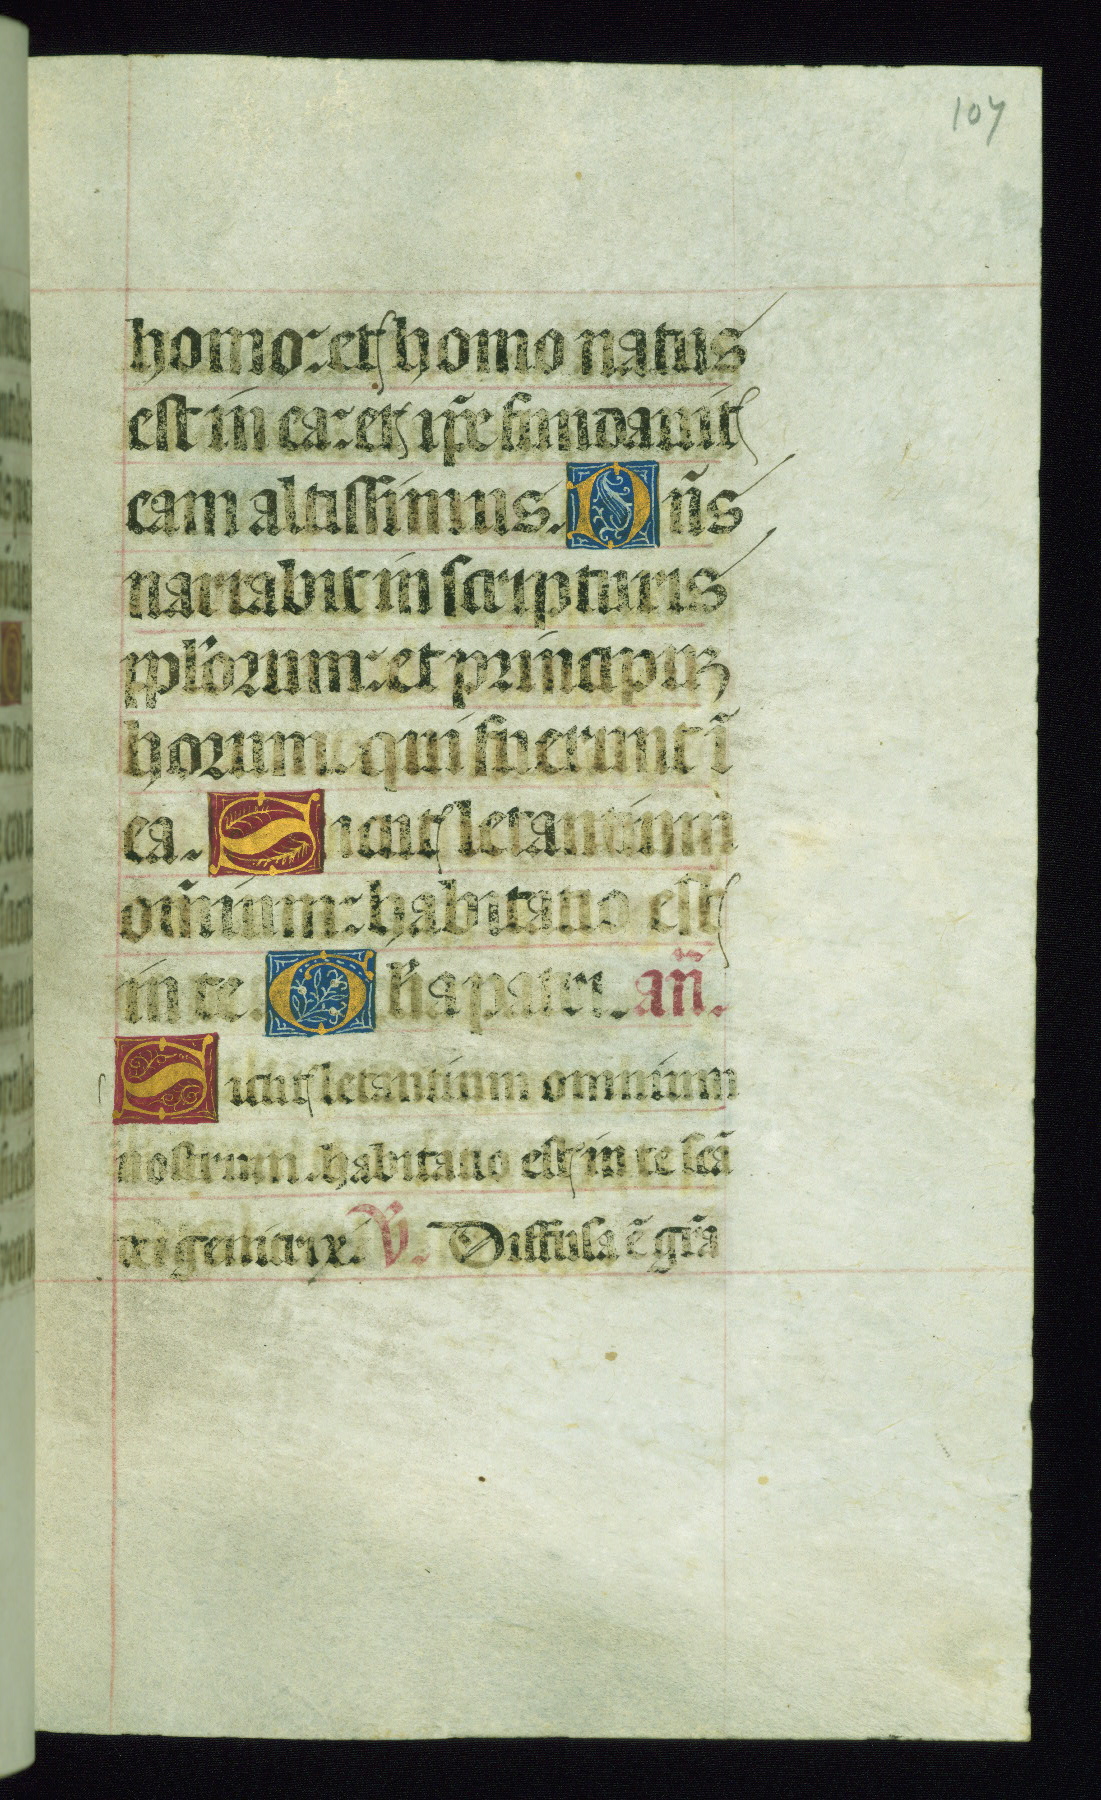 107
homo: et homo natus
est in ea: et ip̄e fundauit
eam altissimus. Dn̄s
narrabit in scripturis
pplōrum: et principuꝫ
horum: qui fuerunt ī
ea. Sicut letantium
om̄ium: habitatio est
in te. Glīa patri. an̄.
Sicut letantium omnium
nostrum. habitatio est in te scā
xi genitrix. ℣. Diffusa ē grā